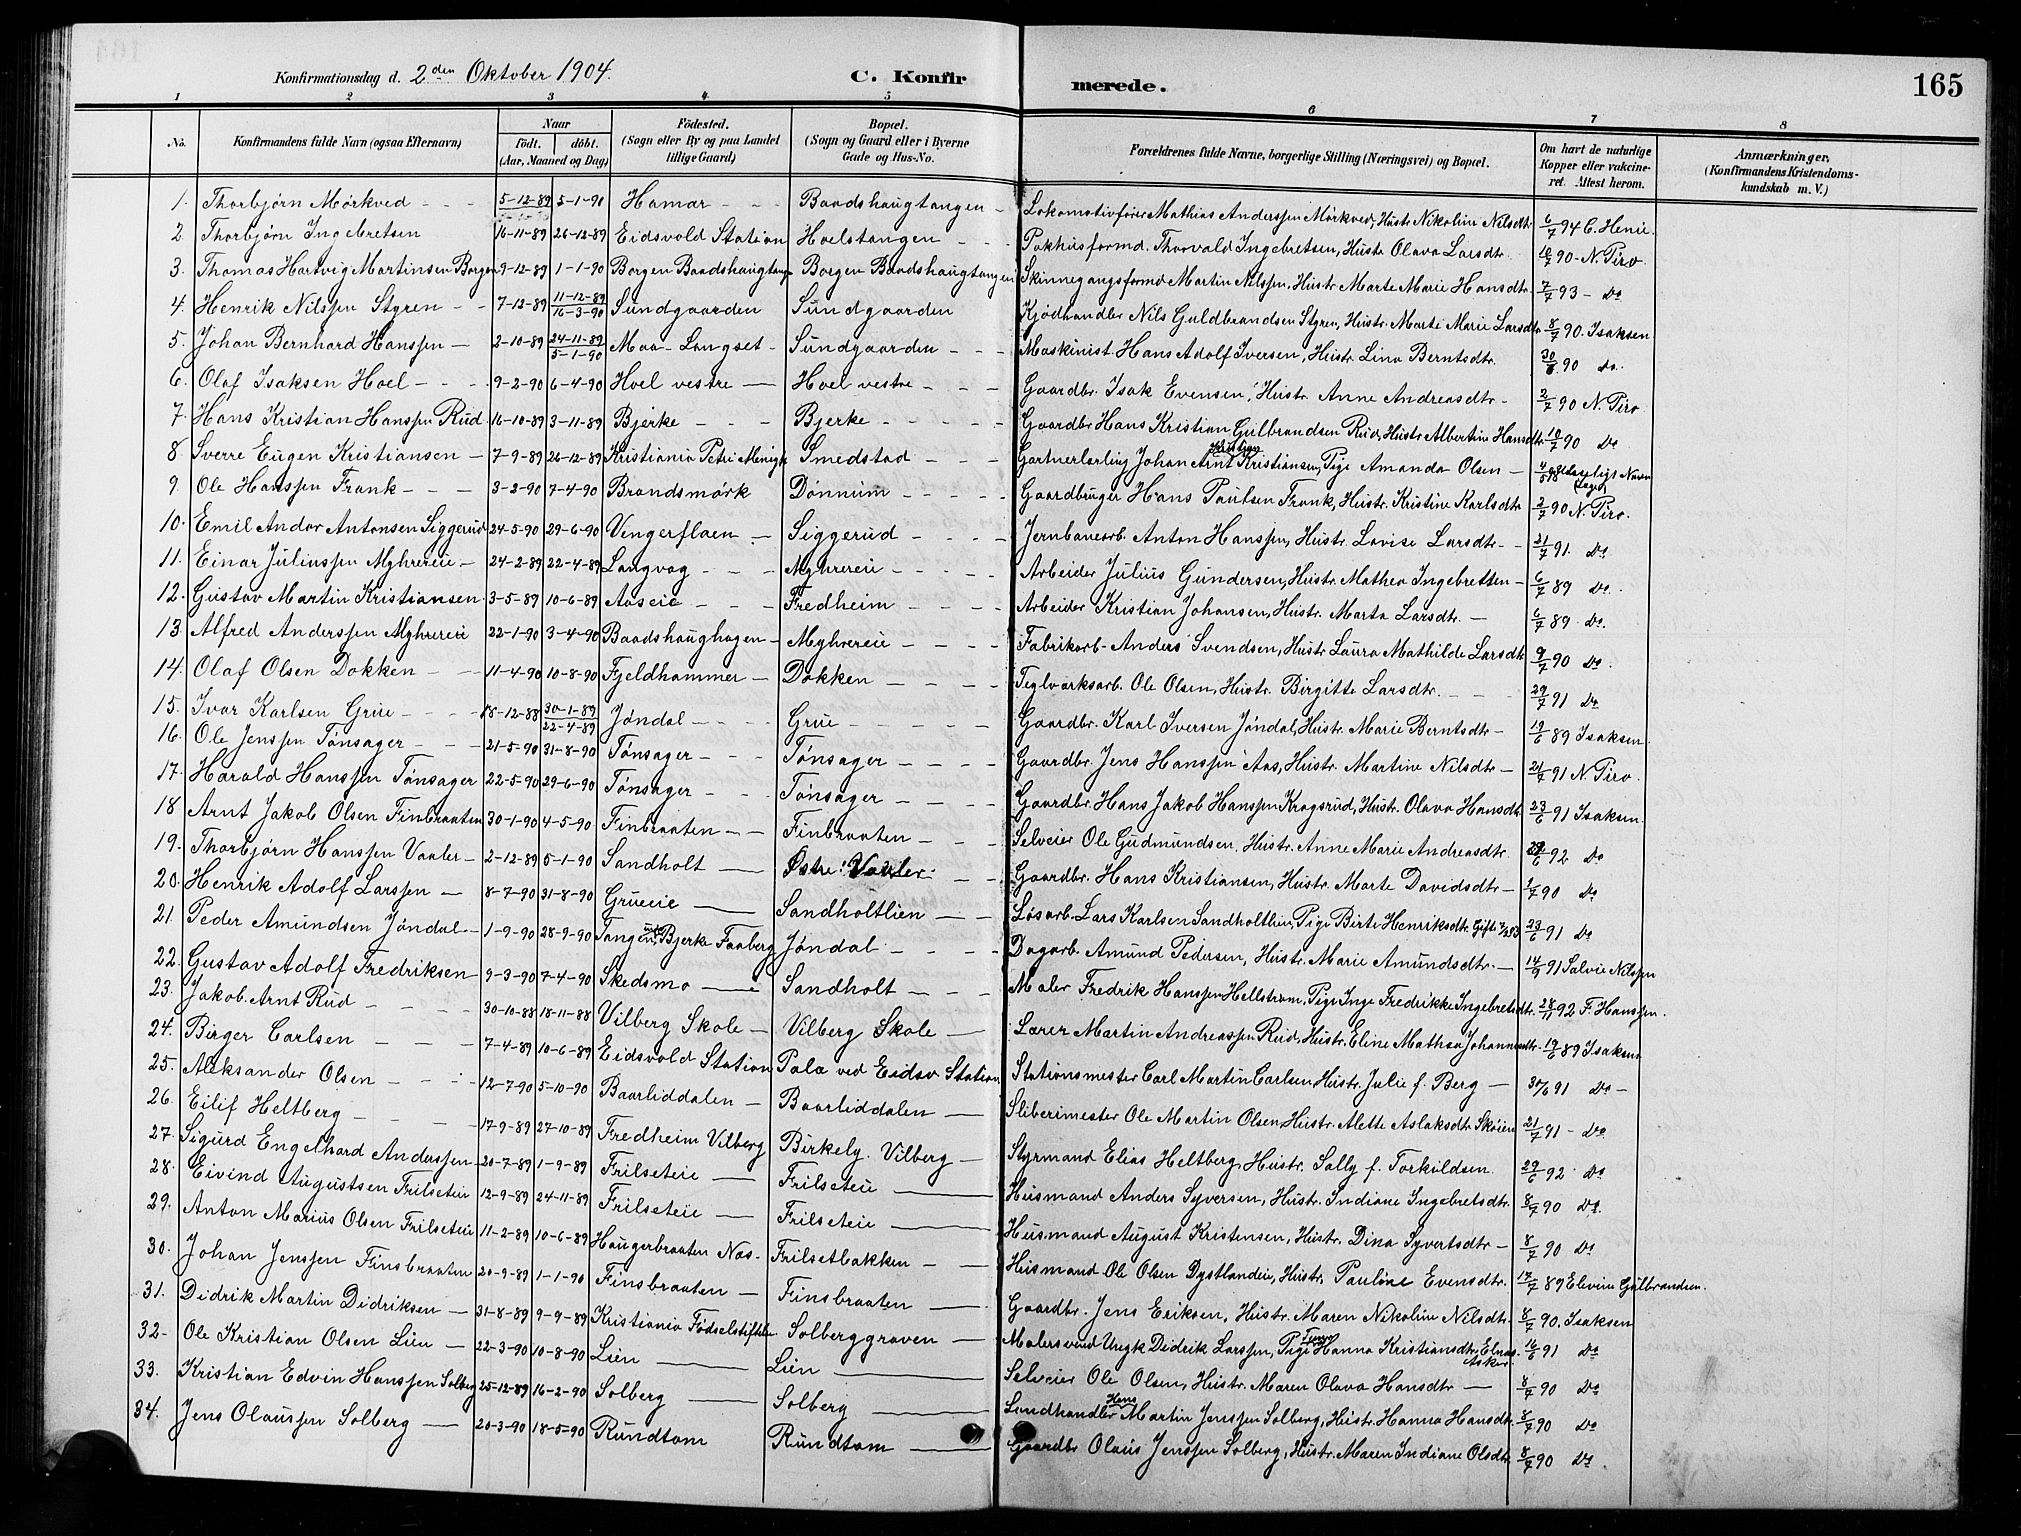 165
Konfirmationsdag d. 2den Oktober 1904.
C. Konfirmerede.
1 2 3 4 5 6 7 8
No. | Konfirmandens fulde Navn (ogsaa Efternavn) | Naar født. døbt. (Aar, Maaned og Dag) | Fødested. (Sogn eller By og paa Landet tillige Gaard) | Bopæl. (Sogn og Gaard eller i Byerne Gade og Hus-No. | Forældrenes fulde Navne, borgerlige Stilling (Næringsvei) og Bopæl. | Om havt de naturlige Kopper eller vakcineret. Attest herom. | Anmærkninger, (Konfirmandens Kristendomskundskab m. V.)
1. Thorbjørn Mørkved | 5-12-89 | 5-1-90 | Hamar | Baadshaugtangen | Lokomotivfører Mathias Anderssen Mørkved, Hustr. Nikoline Nilsdtr. | 6/7 94 C. Henie.
2. Thorbjørn Ingebretsen | 16-11-89 | 26-12-89 | Eidsvold Station | Hoelstangen | Pakhusformd. Thorvald Ingebretsen, Hustr. Olava Larsdtr. | 90 N. Piro
3. Thomas Hartvig Martinsen Borgen | 9-12-89 | 1-1-90 | Borgen Baadshaugtangen | Borgen Baadshaugtangen | Skinnegangsformd Martin Nilssen, Hustr. Marte Marie Hansdtr. | 7/7 93 - Do
4. Henrik Nilssen Styren | 7-12-89 | 11-12-89 16-3-90 | Sundgaarden | Sundgaarden | Kjødhandler Nils Guldbrandsen Styren, Hustr. Marte Marie Larsdtr. | 8/7 90. Isaksen
5. Johan Bernhard Hanssen | 2-10-89 | 24-11-89 5-1-90 | Maa - Langset | Sundgaarden | Maskinist Hans Adolf Iversen, Hustr. Lina Berntsdtr. | 30/6 90 Do.
6. Olaf Isaksen Hoel | 9-2-90 | 6-4-90 | Hoel vestre | Hoel vestre | Gaardbr. Isak Evensen, Hustr. Anne Andreasdtr. | 2/7 90 N. Piro
7. Hans Kristian Hanssen Rud | 16-10-89 | 3-11-89 | Bjerke | Bjerke | Gaardbr Hans Kristian Gulbrandsen Rud, Hustr. Albertine Hansdtr | 10/7 90 Do
8. Sverre Eugen Kristiansen | 7-9-89 | 26-12-89 | Kristiania Petri Menigh | Smedstad | Gartnerlærling Johan Arnt Kristian Kristiansen, Pige Amanda Olsen | 98 Navn
9. Ole Hanssen Frank | 3-2-90 | 7-4-90 | Brandsmørk | Dønnum | Gaardbruger Hans Paulsen Frank, Hustr. Kristine Karlsdtr | 2/7 90 N. Piro.
10. Emil Andor Antonsen Siggerud | 24-5-90 | 29-6-90 | Vengerflaen | Siggerud | Jernbanearb. Anton Hanssen, Hustr. Lovise Larsdtr. | 21/7 91. Do
11. Einar Juliussen Myhrereie | 24-2-89 | 22-4-89 | Langvag | Myhrereie | Arbeider Julius Gundersen, Hustr. Mathea Ingebretsen | 6/7 89 Do.
12. Gustav Martin Kristiansen | 3-5-89 | 10-6-89 | Aaseie | Fredheim | Arbeider Kristian Johansen, Hustr. Marta Larsdtr. | 6/7 89 Do.
13. Alfred Anderssen Myhrereie | 22-1-90 | 3-4-90 | Baadshaughagen | Myhrereie | Fabrikarb. Anders Svendsen, Hustr Laura Mathilde Larsdtr | 9/7 90 Do.
14. Olaf Olsen Dokken | 11-4-90 | 10-8-90 | Fjeldhammer | Dokken | Teglværksarb. Ole Olsen, Hustr. Birgitte Larsdtr. | 29/7 91 Do
15. Ivar Karlsen Grue | 18-12-88 | 30-1-89 22-4-89 | Jøndal | Grue | Gaardbr. Karl Iversen Jøndal, Hustr. Marie Berntsdtr | 19/6 89 Isaksen
16. Ole Jenssen Tønsager | 21-5-90 | 31-8-90 | Tønsager | Tønsager | Gaardbr. Jens Hanssen Aas, Hustr. Martine Nilsdtr | 21/7 91 N. Piro.
17. Harald Hanssen Tønsager | 22-5-90 | 29-6-90 | Tønsager | Tønsager | Gaardbr. Hans Jakob Hanssen Kragsrud, Hustr. Olava Hansdtr | 23/6 91 Isaksen.
18 Arnt Jakob Olsen Finbraaten | 30-1-90 | 4-5-90 | Finbraaten | Finbraaten | Selveier Ole Gudmundsen, Hustr. Anne Marie Andreasdtr | 92 Do
19. Thorbjørn Hanssen Vaaler | 2-12-89 | 5-1-90 | Sandholt | Østre Vaaler | Gaardbr. Hans Kristiansen, Hustr. Marte Davidsdtr | 1/7 90 Do
20. Henrik Adolf Larssen | 8-7-90 | 31-8-90 | Grueeie | Sandholtlien | Løsarb. Lars Karlsen Sandholtlien, Pige Birte Henriksdtr. | 23/6 91 Do
21. Peder Amundsen Jøndal | 1-9-90 | 28-9-90 | Tangen Bjerke Faaberg | Jøndal | Dagarb. Amund Pedersen, Hustr. Marie Amundsdtr. | 14/9 91 Salvie Nilssen
22. Gustav Adolf Fredriksen | 9-3-90 | 7-4-90 | Skedsmo | Sandholt | Maler Fredrik Hanssen Hellstrøm, Pige Inge Fredrikke Ingebretsdtr. | 28/11 92 F. Hanssen.
23. Jakob Arnt Rud | 30-10-88 | 18-11-88 | Vilberg Skole | Vilberg Skole | Lærer Martin Andreassen Rud, Hustr. Eline Mathea Johannesdtr. | 19/6 89 Isaksen
24. Birger Carlsen | 7-4-89 | 10-6-89 | Eidsvold Station | Pala ved Eidsv Station | Stationsmester Carl Martin Carlsen Hustr. Julie f. Berg | 30/6 91 Do
25. Aleksander Olsen | 12-7-90 | 5-10-90 | Baarliddalen | Baarliddalen | Sliberimester Ole Martin Olsen, Hustr. Alette Aslaksdtr. Skøien | 21/7 91 - Do
26. Eilif Heltberg | 17-9-89 | 27-10-89 | Fredheim Vilberg | Birkely. Vilberg | Styrmand Elias Heltberg, Hustr. Sally f. Torkildsen. | 29/6 92 Do
27. Sigurd Engelhard Anderssen | 20-7-89 | 1-9-89 | Frilseteie | Frilseteie | Husmand Anders Syversen, Hustr. Indiane Ingebretsdtr. | 8/7 90 Do.
28. Eivind Augustsen Frilseteie | 12-9-89 | 24-11-89 | Frilseteie | Frilseteie | Husmand August Kristensen, Hustr. Dina Syvertsdtr | 8/7 90 Do
29. Anton Marius Olsen Frilseteie | 11-2-89 | 10-6-89 | Haugerbraaten Næs | Frilsetbakken | Husmand Ole Olsen Dystlandeie, Hustr. Pauline Evensdtr. | 17/7 89 Elevine Gulbrandsen.
30. Johan Jenssen Finsbraaten | 20-9-89 | 1-1-90 | Finsbraaten | Finsbraaten | Gaardbr. Jens Eriksen, Hustr. Maren Nikoline Nilsdtr. | 8/7 90. Isaksen
31. Didrik Martin Didriksen | 31-8-89 | 9-9-89 | Kristiania Fødselstiftelse | Solberggraven | Malersvend Ungk Didrik Larssen, Pige Hanna Kristiansdtr. Asker | 16/6 91 Do
32. Ole Kristian Olsen Lien | 22-3-90 | 10-8-90 | Lien | Lien | Selveier Ole Olsen, Hustr. Maren Olava Hansdtr | 8/7 90 Do
33. Kristian Edvin Hanssen Solberg | 25-12-89 | 16-2-90 | Solberg | Solberg | Landhandler Hans Martin Jenssen Solberg, Hustr. Hanna Hansdtr. | 8/7 90 Do
34. Jens Olaussen Solberg | 20-3-90 | 18-5-90 | Rundtom | Rundtom | Gaardbr Olaus Jenssen Solberg, Hustr. Maren Indiane Olsdtr. | 8/7 90 Do.